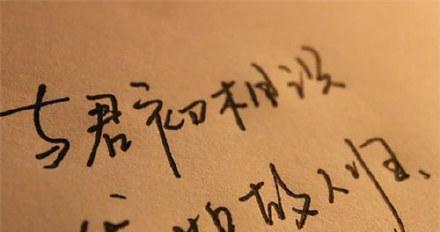 与君初相识
故人归